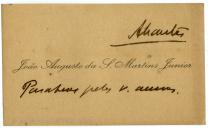 Abrantes
João Augusto da S. Martins Junior
Parabens pelos v. annos.